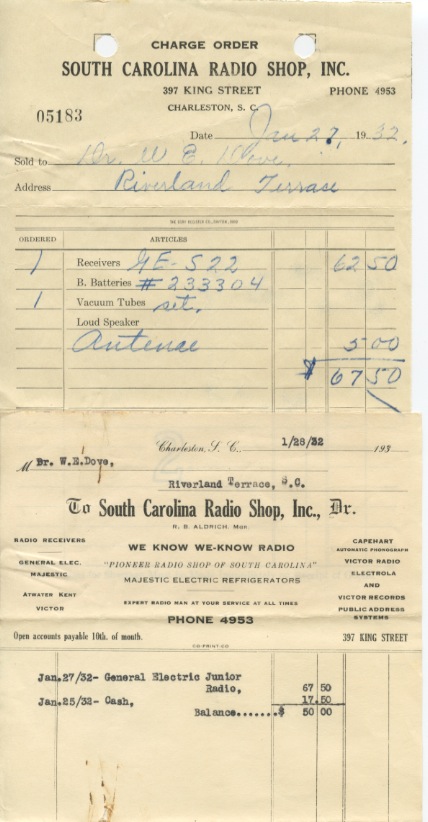 CHARGE ORDER
SOUTH CAROLINA RADIO SHOP, INC.
397 KING STREET PHONE 4953
CHARLESTON, S. C.
05183
Date Jan 27, 1932.
Sold to Dr. W. E. Dove,
Address Riverland Terrase
ORDERED ARTICLES
1 Receivers GE-S22 62 50
B. Batteries # 233304
1 Vacuum Tubes set.
Loud Speaker
Antenae 5 00
$ 67 50
Charleston, S. C., 1/28/32 193
M Dr. W.E.Dove,
Riverland Terrace, S.C.
To South Carolina Radio Shop, Inc., Dr.
R. B. ALDRICH, MGR.
RADIO RECEIVERS
GENERAL ELEC.
MAJESTIC
ATWATER KENT
VICTOR
WE KNOW WE-KNOW RADIO
"PIONEER RADIO SHOP OF SOUTH CAROLINA"
MAJESTIC ELECTRIC REFRIGERATORS
EXPERT RADIO MAN AT YOUR SERVICE AT ALL TIMES
PHONE 4953
CAPEHART
AUTOMATIC PHONOGRAPH
VICTOR RADIO
ELECTROLA
AND
VICTOR RECORDS
PUBLIC ADDRESS
SYSTEMS
Open accounts payable 10th. of month. 397 KING STREET
CO-PRINT-CO
Jan.27/32- General Electric Junior
Radio, 67 50
Jan.25/32- Cash, 17.50
Balance.......$ 50 00